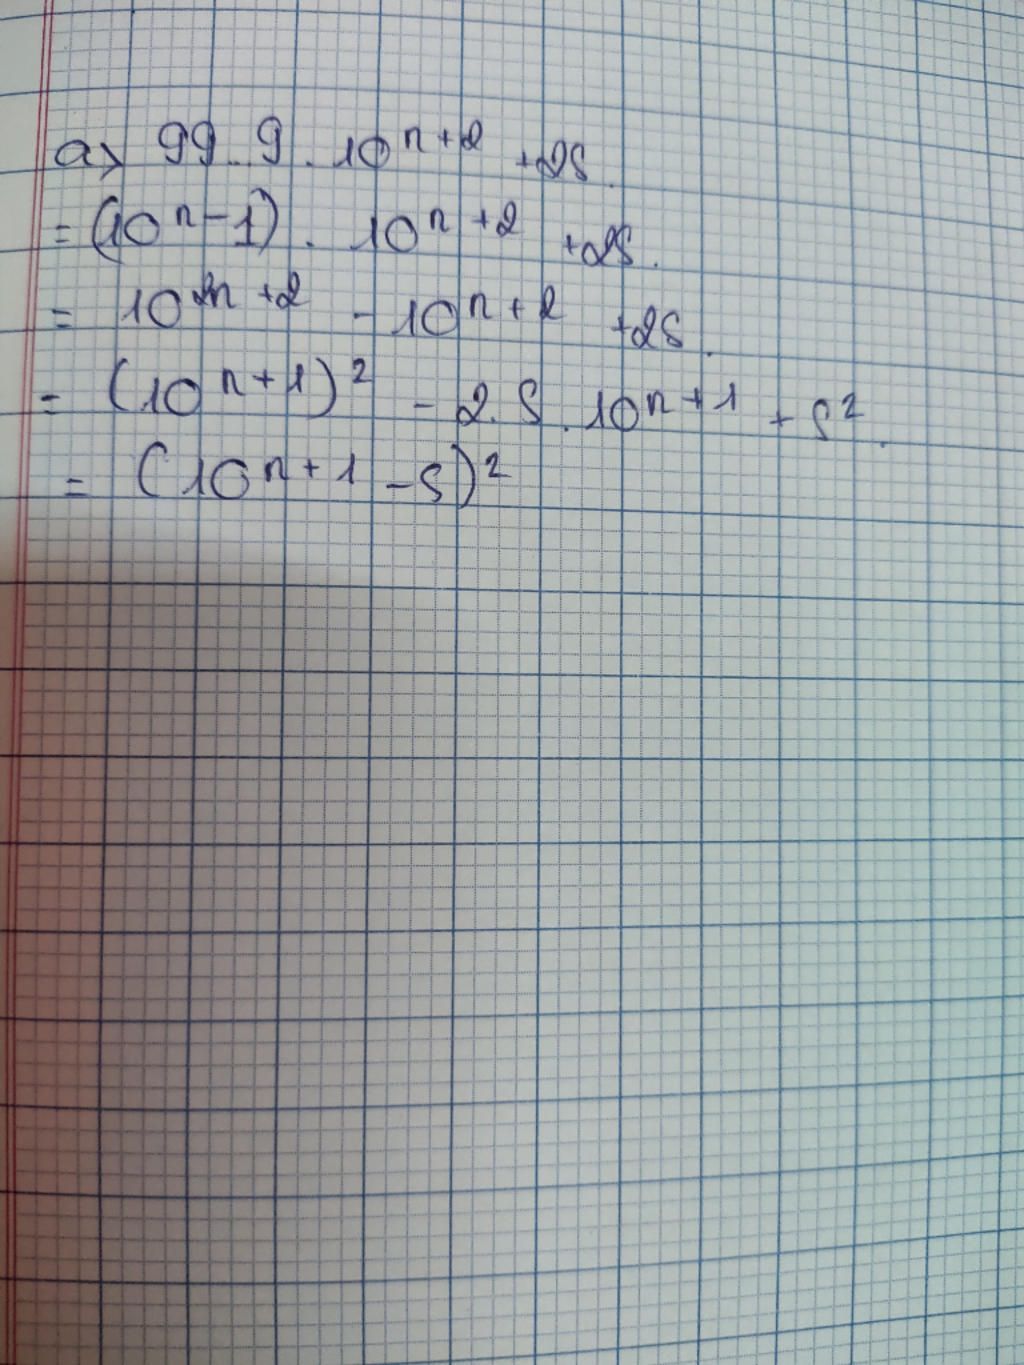 a> 99...9 . 10^{n+2} + 25.
= (10^n - 1) . 10^{n+2} + 25.
= 10^{2n+2} - 10^{n+2} + 25.
= (10^{n+1})^2 - 2.5.10^{n+1} + 5^2.
= (10^{n+1} - 5)^2